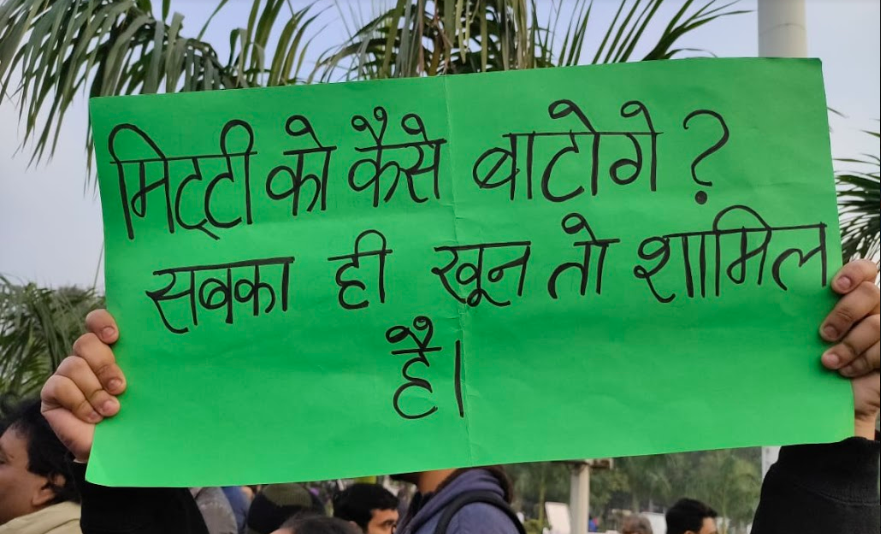 मिट्टी को कैसे बाटोगे ?
सबका ही खून तो शामिल
है।